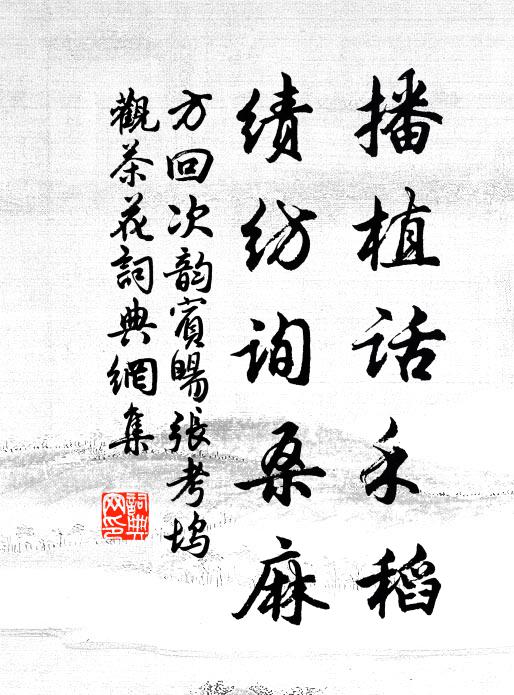 播植话禾稻
绩纺询桑麻
方回次韵宾旸張考坞
觀茶花詞典網集
詞典网印